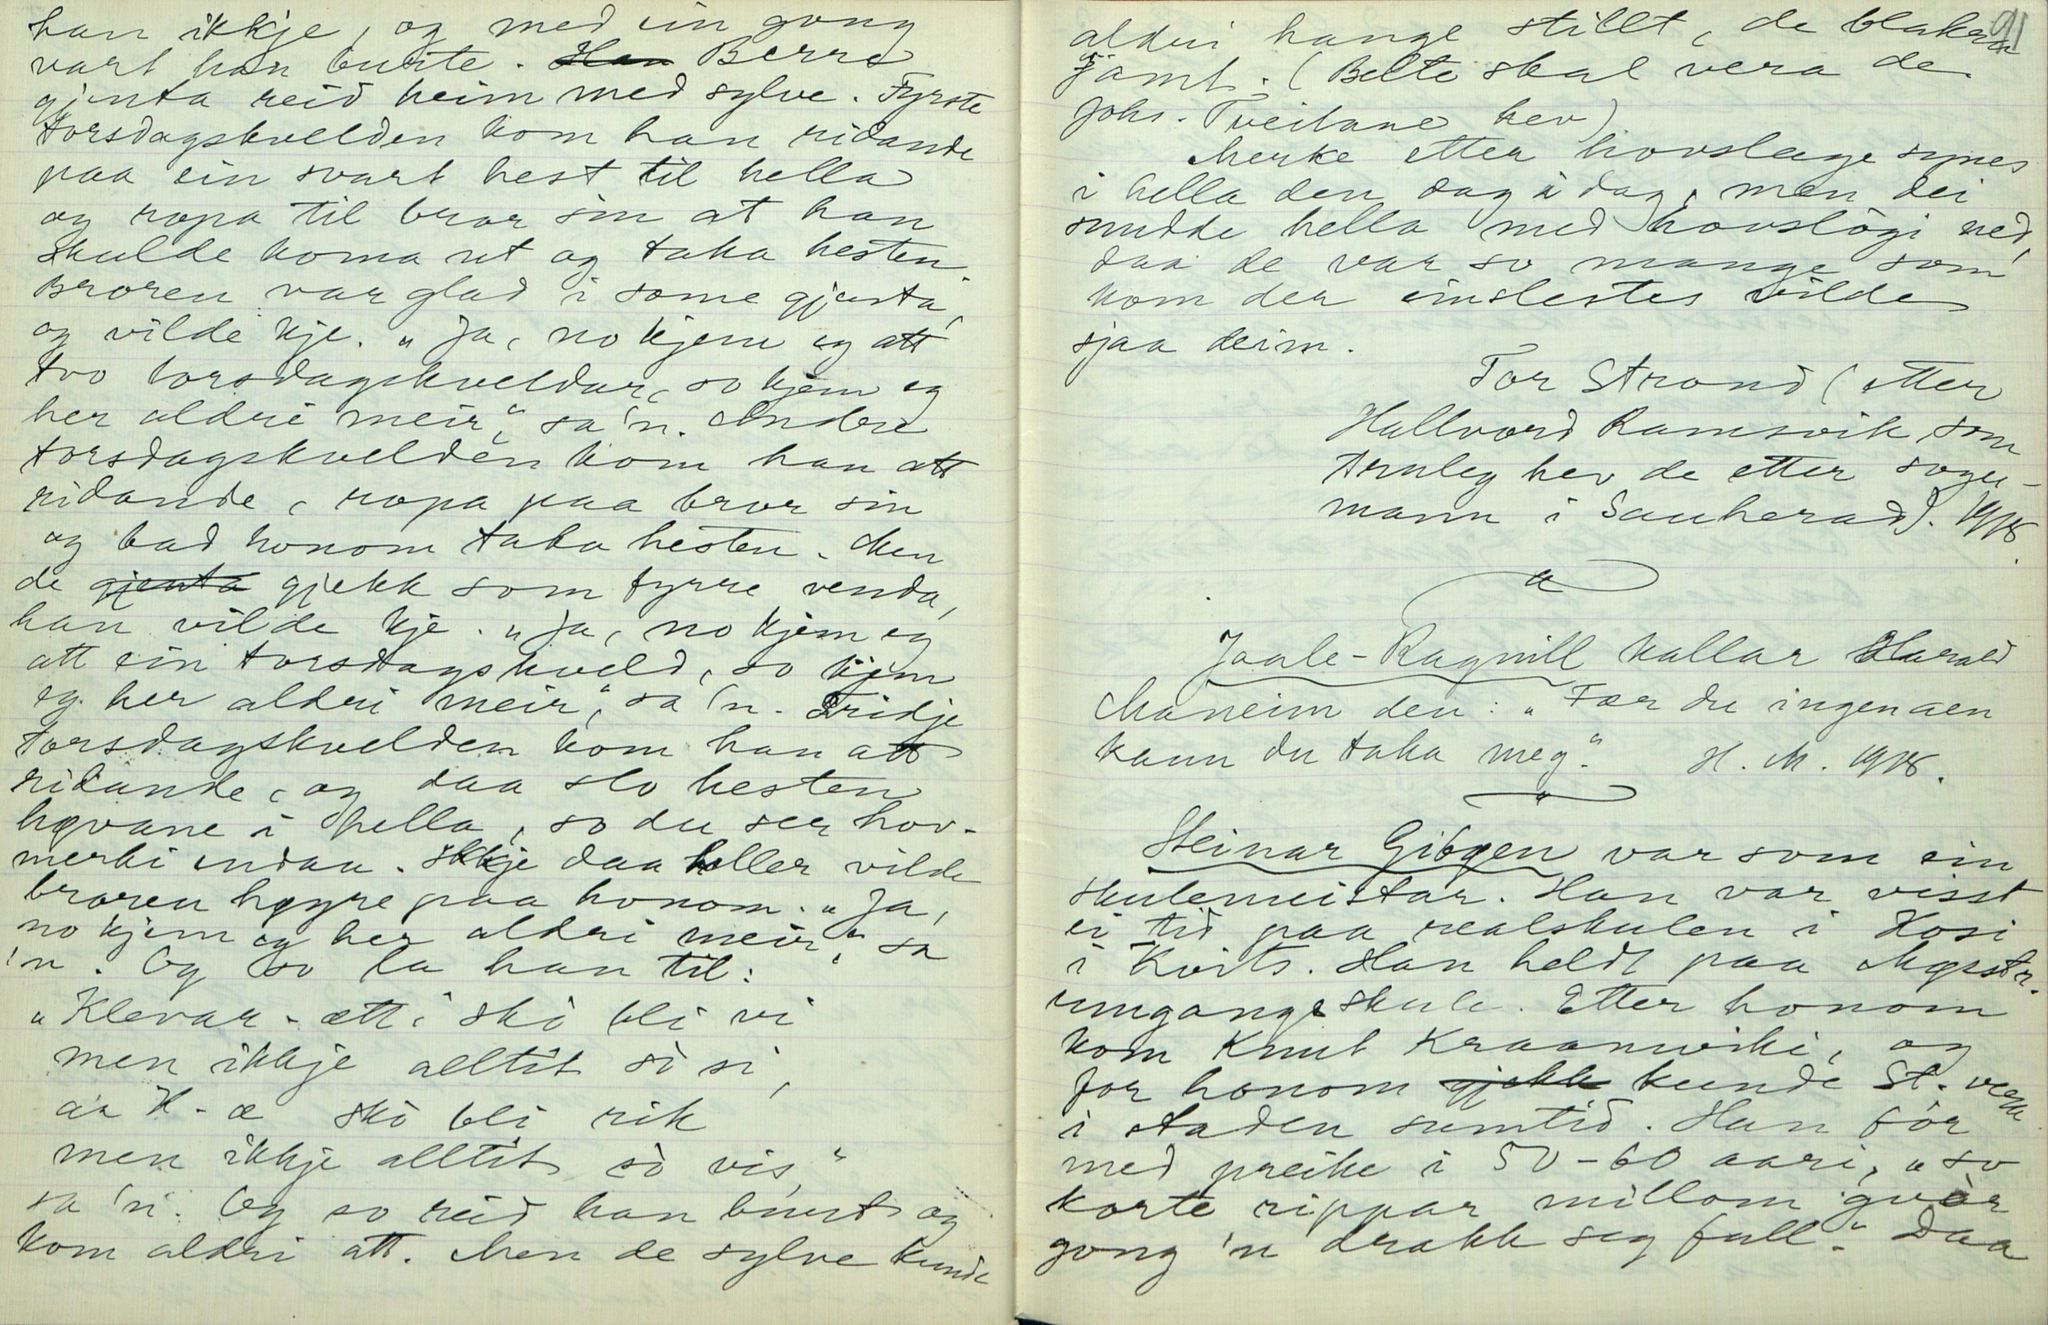 han ikkje, og med ein gong
vart han burte. Han Berre
gjenta reid heim med sylve. Fyrste
torsdagskvelden kom han ridande
paa ein svart hest til hella
og ropa til bror sin at han
skulde koma ut og taka hesten.
Broren var glad i same gjenta,
og vilde kje. „Ja, no kjem eg att
tvo torsdagskveldar, so kjem eg
her aldri meir," sa 'n. Andre
torsdagskvelden kom han att
ridande, ropa paa bror sin
og bad honom taka hesten. Men
de gjenta gjekk som fyrre venda,
han vilde kje. „Ja, no kjem eg
att ein torsdagskveld, so kjem
eg her aldri meir," sa 'n. Tridje
torsdagskvelden kom han att
ridande, og daa slo hesten
hovane i hella, so du ser hov-
merki endaa. Ikkje daa heller vilde
broren høyre paa honom. „Ja,
no kjem eg her aldri meir," sa
'n. Og so la han til:
„Klevar-ætti ski bli vi
men ikkje alltit so si,
aa K-æ ski bli rik
men ikkje alltit so vis,"
sa 'n. Og so reid han burt og
kom aldri att. Men de sylve kunde
91
aldri hange stillt, de blakra
jamt. (Belte skal vera de
Johs. Tveitane hev)
Merke etter hovslage synes
i hella den dag i dag, men dei
snudde hella med hovslògi ned,
daa de var so mange som
kom der einslestes vilde
sjaa deim.
Tor Strond (etter
Hallvord Ramsvik som
truleg hev de etter sogu-
mann i Sauherad). 1918.
Jaale-Ragnill kallar Harald
Maneim den: „Fær du ingen aen
kann du taka meg." H. M. 1918.
Steinar Gibøen var som ein
skulemeistar. Han var visst
ei tid paa realskulen i Kosi
i Kvits. Han heldt paa Møsstr.
umgangsskule. Etter honom
kom Knut Kraanviki, og
for honom gjekk kunde St. vera
i staden sumtid. Han fór
med preike i 50-60 aari, „so
korte rippar millom gvor
gong 'n drakk seg full." Daa